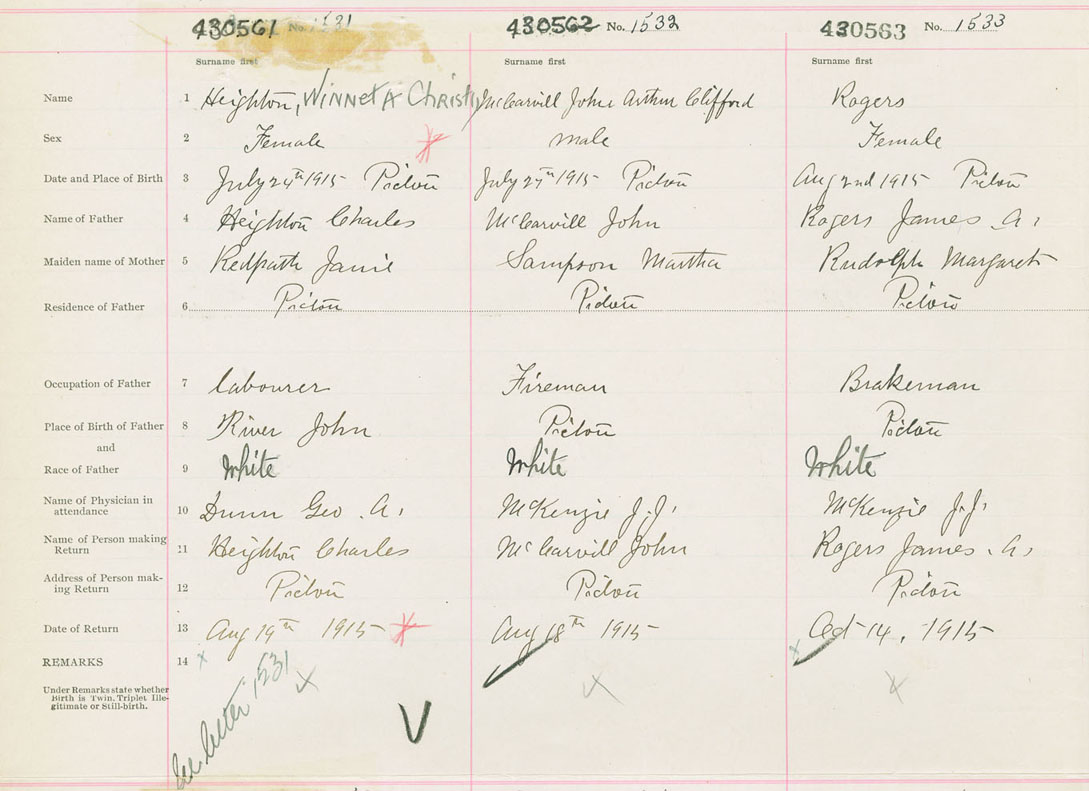 430561 No. 1531 430562 No. 1532 430563 No. 1533
Surname first Surname first Surname first
Name 1 Heighton, Winneta Christy McCarvill John Arthur Clifford Rogers
Sex 2 Female male Female
Date and Place of Birth 3 July 24th 1915 Pictou July 27th 1915 Pictou Aug 2nd 1915 Pictou
Name of Father 4 Heighton Charles McCarvill John Rogers James A.
Maiden name of Mother 5 Redpath Janie Sampson Martha Rudolph Margaret
Residence of Father 6 Pictou Pictou Pictou
Occupation of Father 7 labourer Fireman Brakeman
Place of Birth of Father 8 River John Pictou Pictou
and
Race of Father 9 White White White
Name of Physician in
attendance 10 Dunn Geo. A. McKenzie J.J. McKenzie J.J.
Name of Person making
Return 11 Heighton Charles McCarvill John Rogers James. A.
Address of Person mak-
ing Return 12 Pictou Pictou Pictou
Date of Return 13 Aug 19th 1915 Aug 18th 1915 Oct 14, 1915
REMARKS 14
Under Remarks state whether
Birth is Twin, Triplet Ille-
gitimate or Still-birth.
See letter 1531